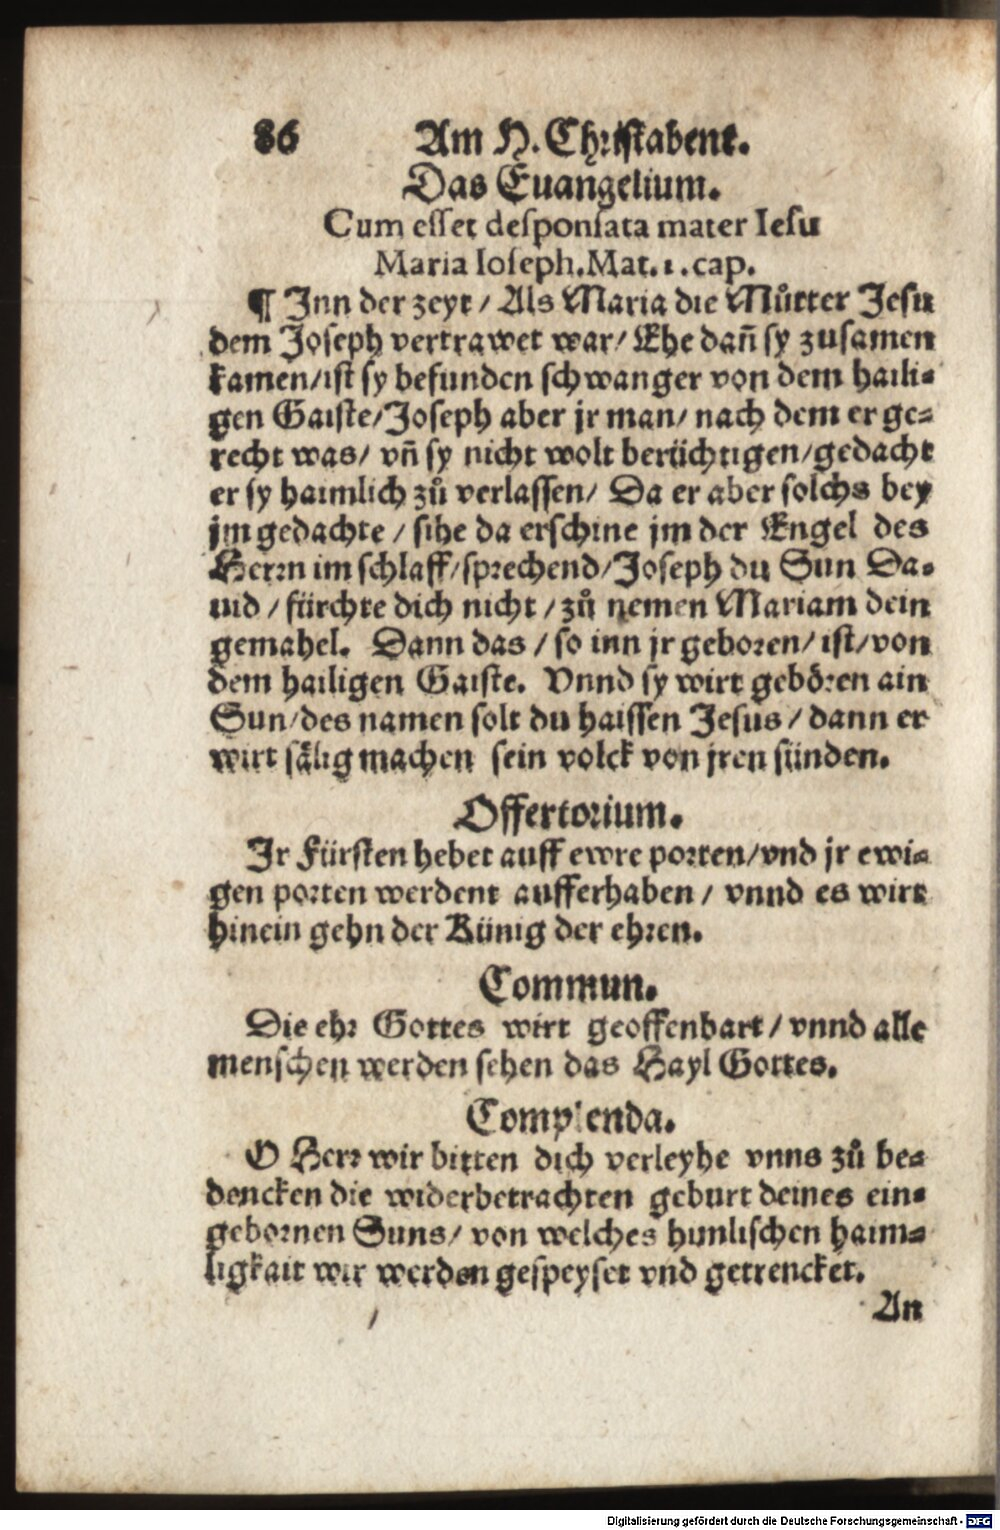 86 Am H. Christabent.
Das Euangelium.
Cum esset desponsata mater Iesu
Maria Ioseph. Mat. 1. cap.
¶ Inn der zeyt / Als Maria die Můtter Jesu
dem Joseph vertrawet war / Ehe dañ sy zusamen
kamen / ist sy befunden schwanger von dem haili-
gen Gaiste / Joseph aber jr man / nach dem er ge-
recht was / vñ sy nicht wolt berüchtigen / gedacht
er sy haimlich zů verlassen / Da er aber solchs bey
jm gedachte / sihe da erschine jm der Engel des
Herrn im schlaff / sprechend / Joseph du Sun Da-
uid / fürchte dich nicht / zů nemen Mariam dein
gemahel. Dann das / so inn jr geboren / ist / von
dem hailigen Gaiste. Vnnd sy wirt gebören ain
Sun / des namen solt du haissen Jesus / dann er
wirt sälig machen sein volck von jren sünden.
Offertorium.
Ir Fürsten hebet auff ewre porten / vnd jr ewi-
gen porten werdent aufferhaben / vnnd es wirt
hinein gehn der Künig der ehren.
Commun.
Die ehr Gottes wirt geoffenbart / vnnd alle
menschen werden sehen das Hayl Gottes.
Complenda.
O Herr wir bitten dich verleyhe vnns zů be-
dencken die widerbetrachten geburt deines ein-
gebornen Suns / von welches himlischen haim-
ligkait wir werden gespeyset vnd getrencket.
An
Digitalisierung gefördert durch die Deutsche Forschungsgemeinschaft - DFG